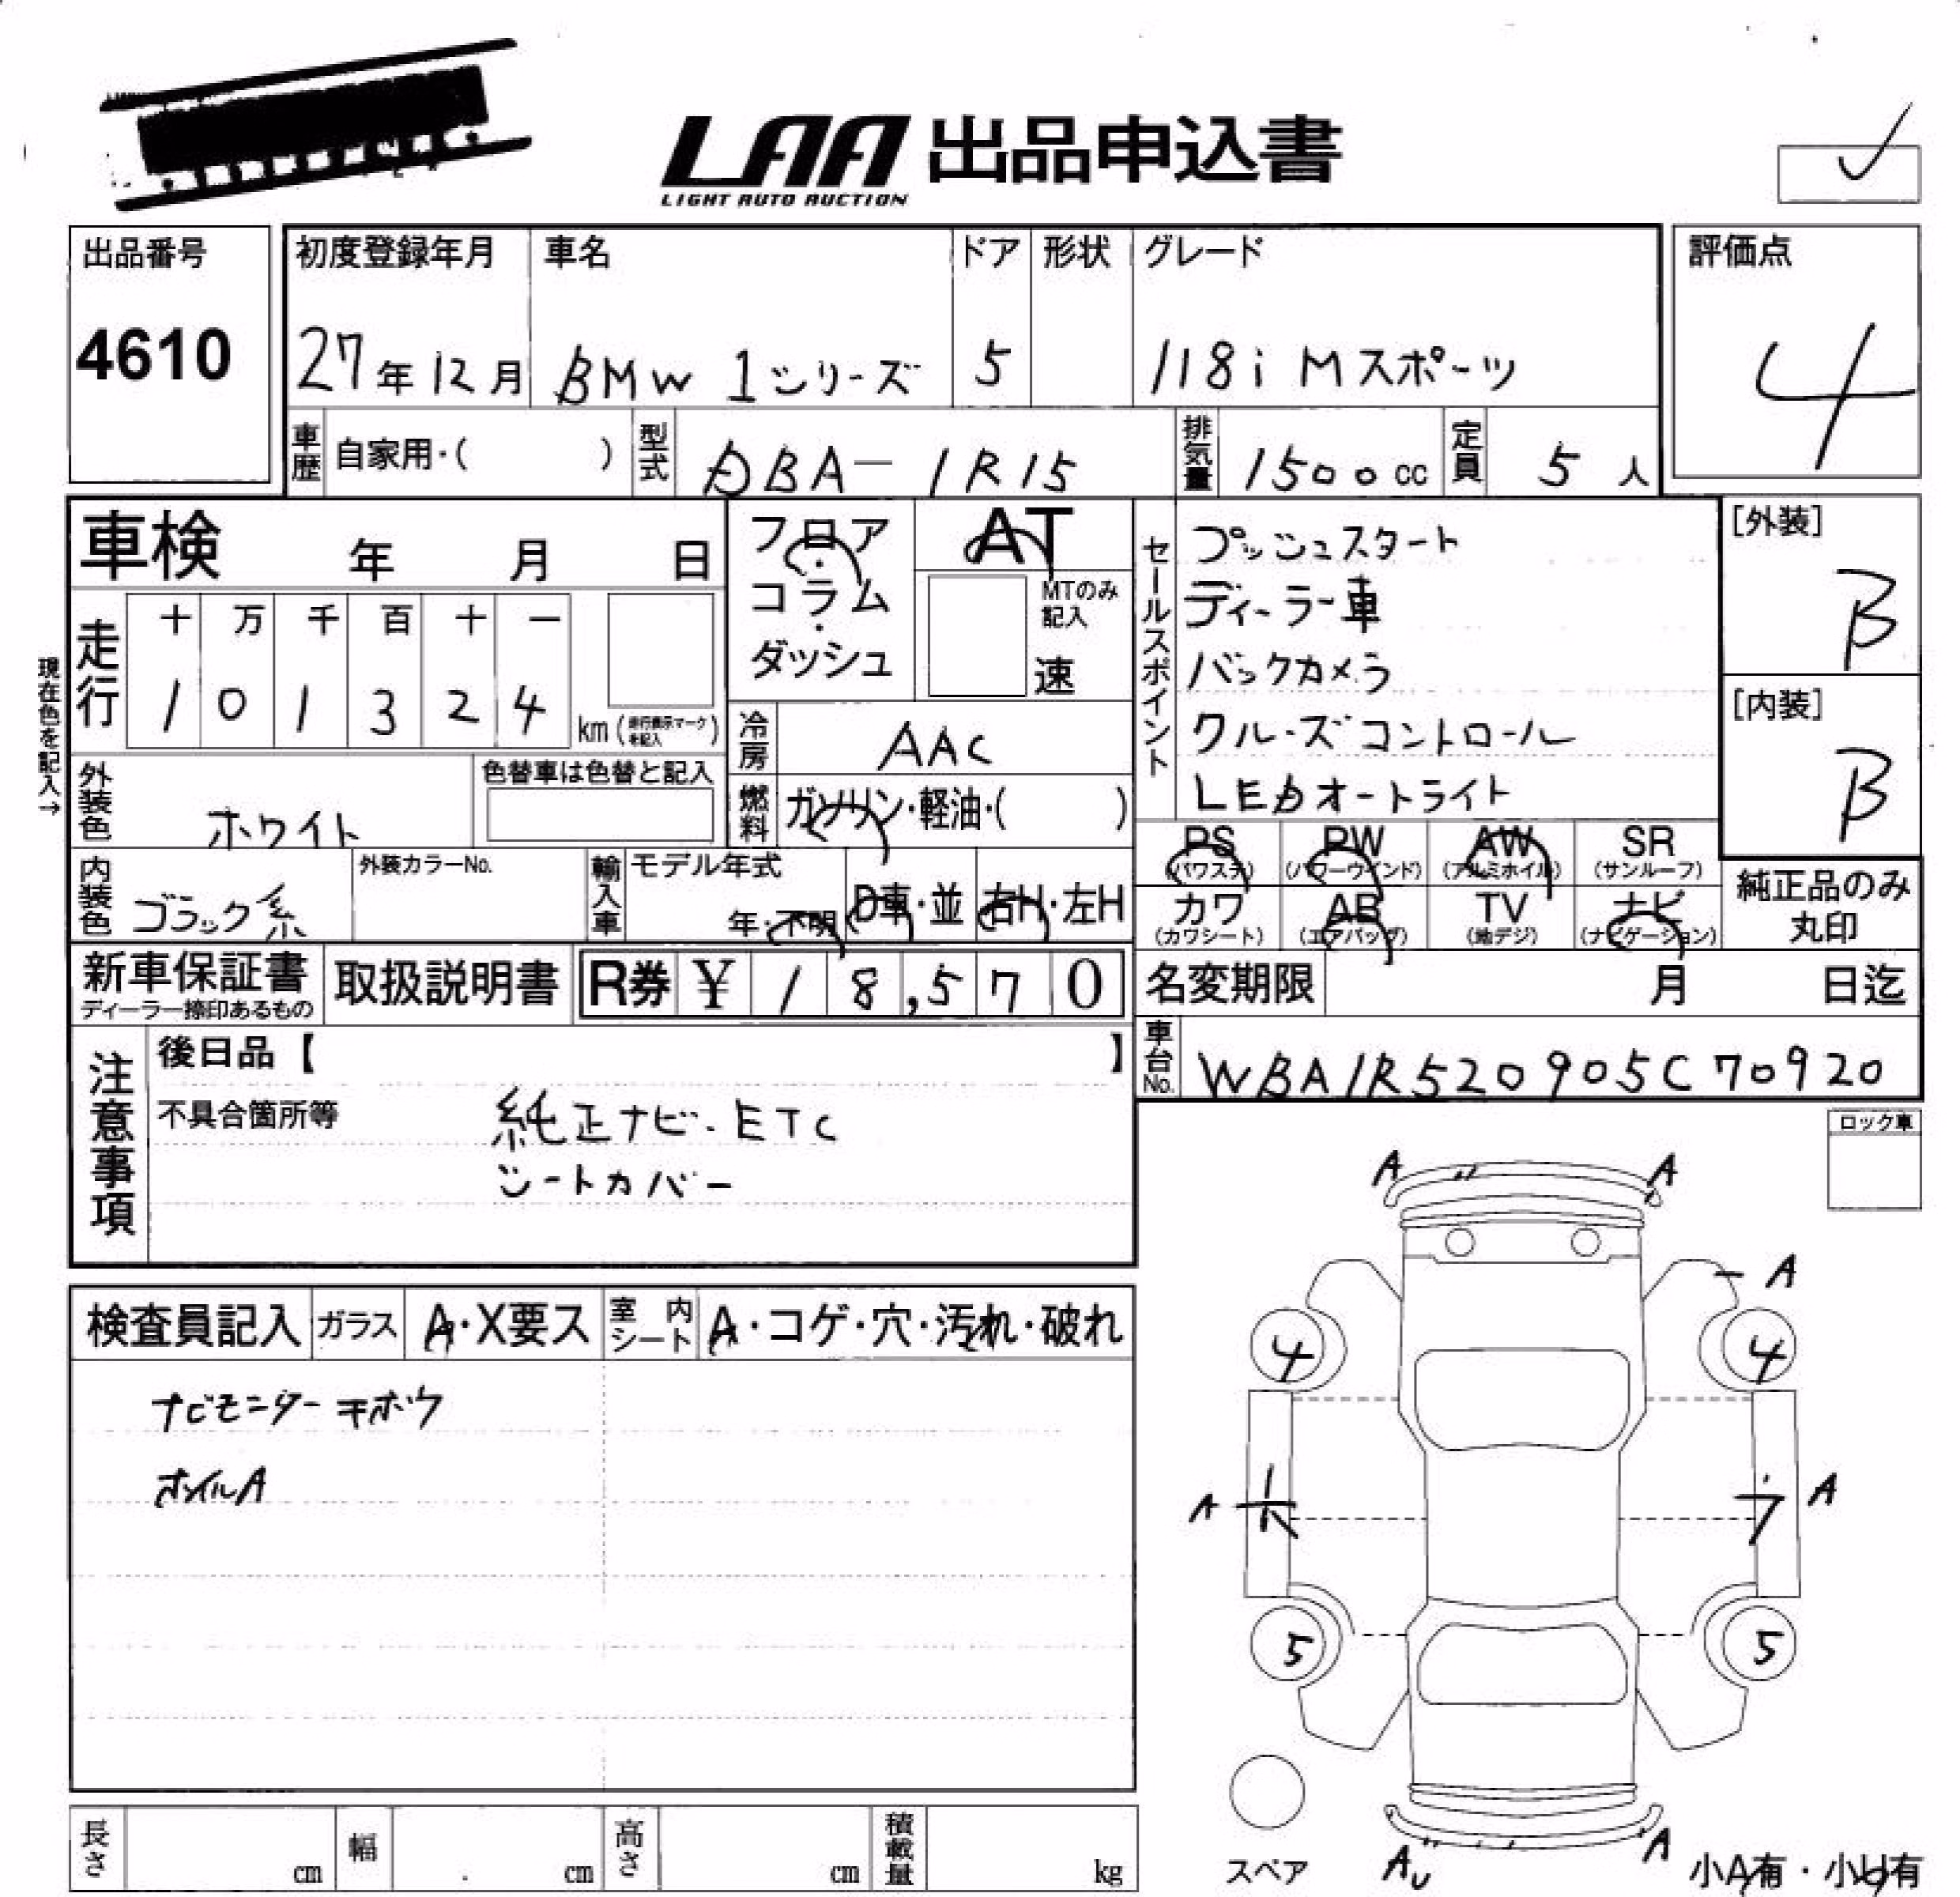 LAA 出品申込書
LIGHT AUTO AUCTION
出品番号
4610
初度登録年月
27年12月
車名
BMW 1シリーズ
ドア
5
形状
グレード
118i Mスポーツ
評価点
4
車歴 自家用・( )
型式 DBA-1R15
排気量 1500cc
定員 5人
車検 年 月 日
フロア・コラム・ダッシュ
AT
MTのみ記入
速
セールスポイント
プッシュスタート
ディーラー車
バックカメラ
クルーズコントロール
LEDオートライト
[外装]
B
[内装]
B
現在色を記入→
走行
十 万 千 百 十 一
1 0 1 3 2 4 km(走行表示マークを記入)
冷房 AAC
燃料 ガソリン・軽油・( )
外装色 ホワイト
色替車は色替と記入
内装色 ブラック系
外装カラーNo.
輸入車
モデル年式
年・不明
D車・並
右H・左H
PS (パワステ)
PW (パワーウインド)
AW (アルミホイル)
SR (サンルーフ)
カワ (カワシート)
AB (エアバッグ)
TV (地デジ)
ナビ (ナビゲーション)
純正品のみ
丸印
新車保証書
ディーラー捺印あるもの
取扱説明書
R券 ¥18,570
名変期限 月 日迄
車台No. WBA1R520905C70920
注意事項
後日品【 】
不具合箇所等
純正ナビ・ETC
シートカバー
ロック車
検査員記入
ガラス A・X要ス
室内シート A・コゲ・穴・汚れ・破れ
ナビモニター キボウ
ホイルA
A A
A
4 4
A A
5 5
スペア
AU A
小A有・小U有
長さ cm
幅 cm
高さ cm
積載量 kg